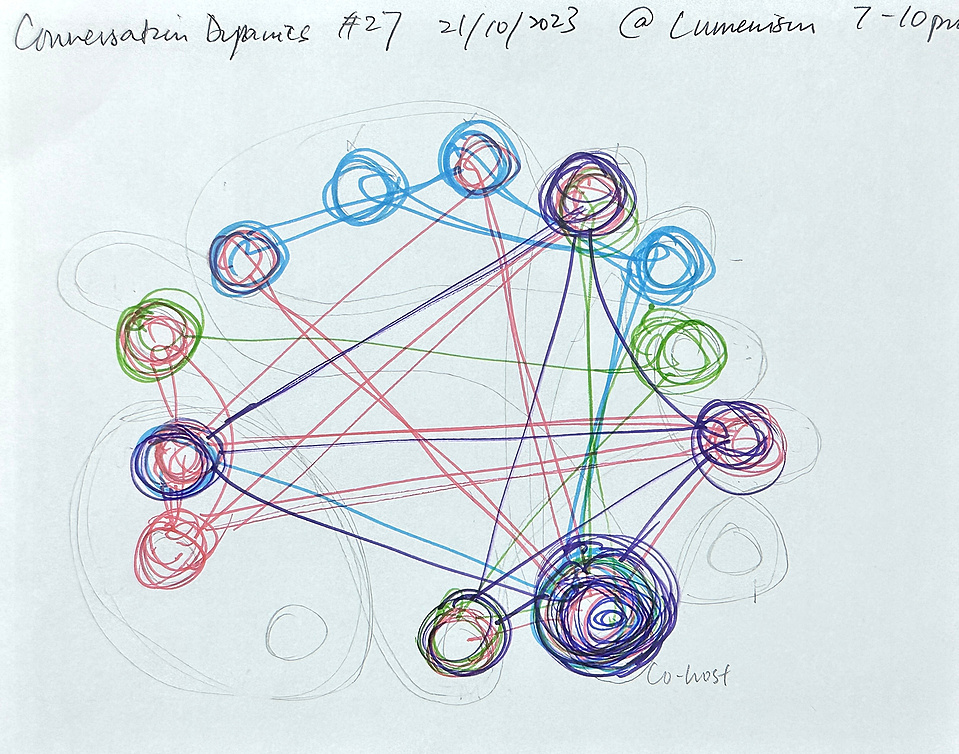 Conversation Dynamics #27 21/10/2023 @ Lumenism 7-10pm
Co-host